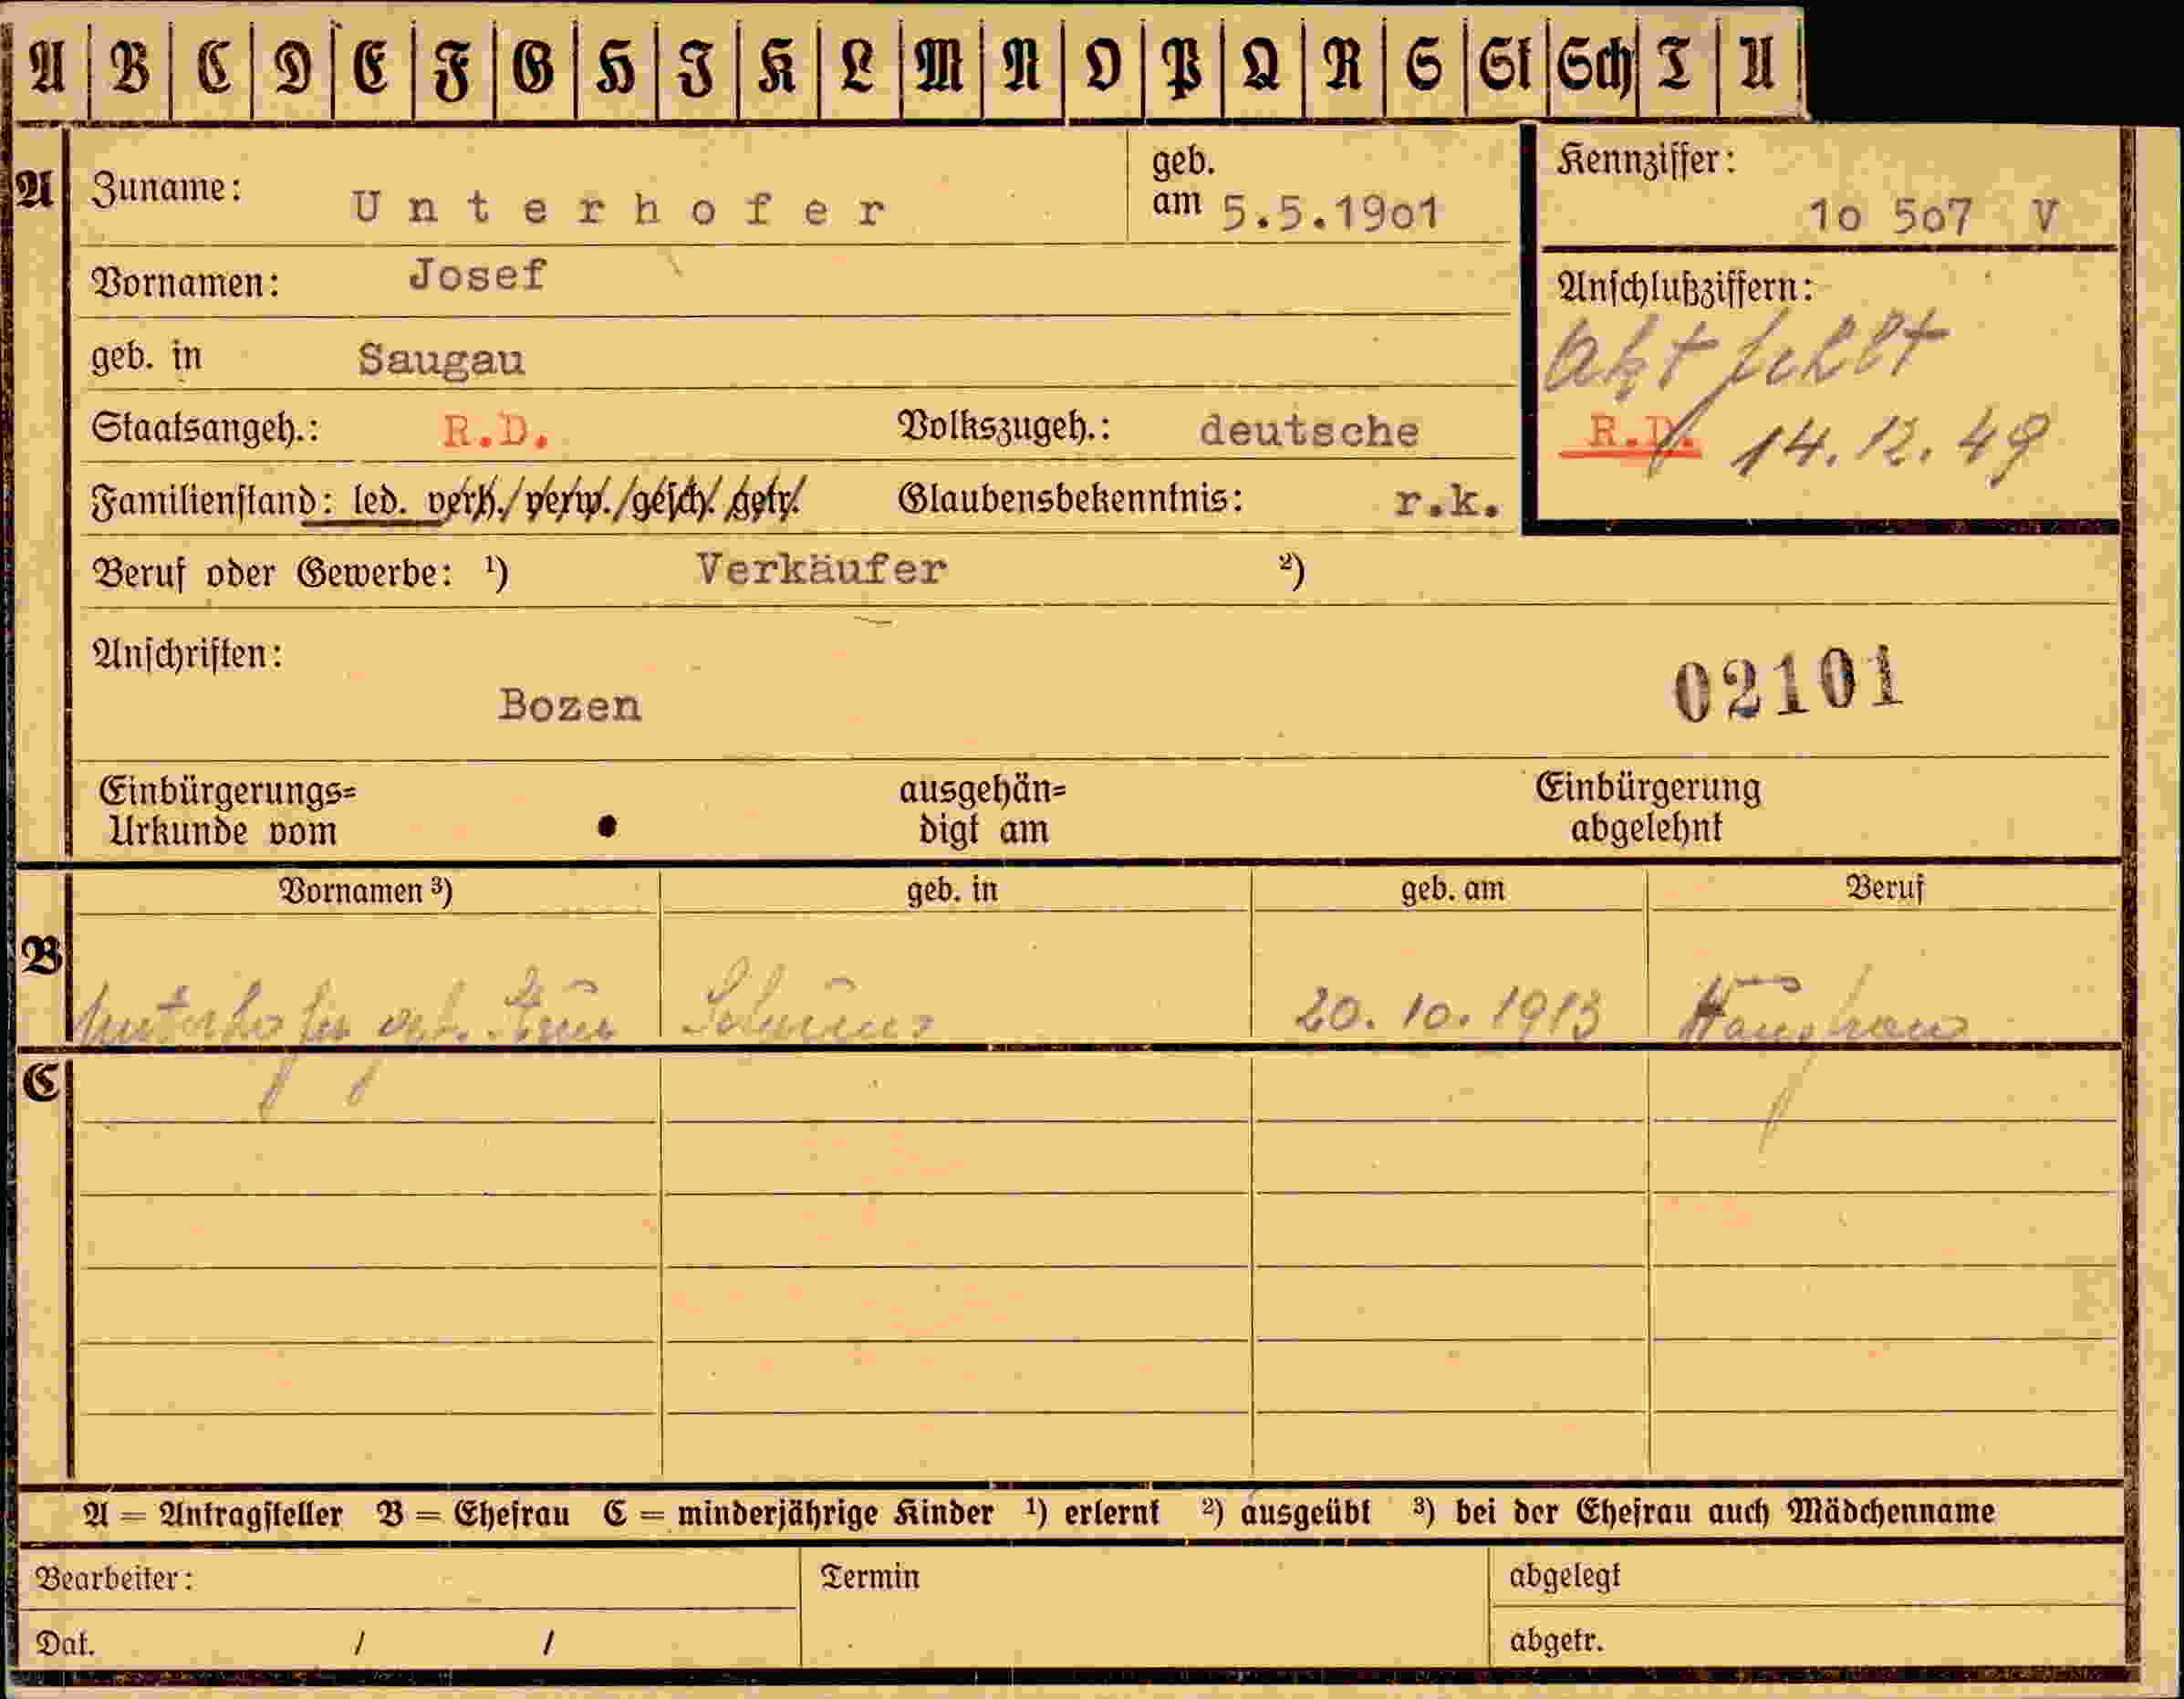 A B C D E F G H I K L M N O P Q R S St Sch T U
A Zuname: Unterhofer geb. am 5.5.1901
Kennziffer: 10 507 V
Vornamen: Josef
Anschlußziffern:
Akt fehlt
geb. in Saugau
Staatsangeh.: R.D. Volkszugeh.: deutsche
R.D. 14.12.49
Familienstand: led. verh./verw./gesch./getr. Glaubensbekenntnis: r.k.
Beruf oder Gewerbe: ¹) Verkäufer ²)
Anschriften:
Bozen
02101
Einbürgerungs= ausgehän= Einbürgerung
Urkunde vom digt am abgelehnt
Vornamen ³) geb. in geb. am Beruf
B Unterhofer geb. 20. 10. 1913 Hausfrau
C
A = Antragsteller B = Ehefrau C = minderjährige Kinder ¹) erlernt ²) ausgeübt ³) bei der Ehefrau auch Mädchenname
Bearbeiter: Termin abgelegt
Dat. / / abgetr.